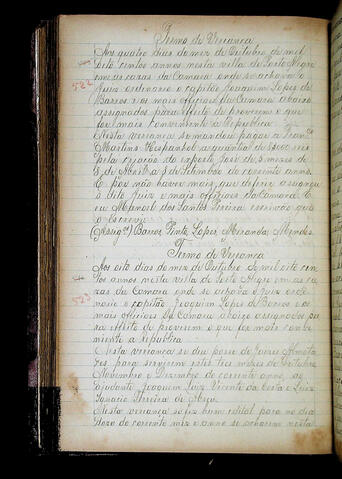 Termo de Veriança
Aos quatro dias do mez de Outubro de mil
oito centos annos nesta villa de Porto Alegre
em as cazas da Camara onde se achava o
522
Juiz ordinario o capitão Joaquim Lopes de
Barros e os mais officiaes da Camara abaixo
assignados para effeito de proverem o que
for mais conveniente a Republica.
Nesta veriança se mandou pagar a
Martins Hespanhol a quantia de 8$000 reis
pela criação do exposto José de 3 mezes de
8 de a 8 de Setembro do corrente anno.
E por não haver mais que deferir assignou
o dito Juiz e mais officiaes da Camara. E
eu Manoel dos Santos Pereira escrivão que
o escrevi
(Assig.) Barros, Pinto, Lopes, Miranda, Mendes.
Termo de Veriança
Aos oito dias do mez de Outubro de mil oito cen-
tos annos nesta villa de Porto Alegre em as ca-
zas da Camara onde se achava o Juiz ordi-
523
nario o capitão Joaquim Lopes de Barros e os
mais officiaes da Camara abaixo assignados pa-
ra effeito de proverem o que for mais conve-
niente a Republica.
Nesta veriança se deu posse de Juizes Almota-
ces para servirem estes tres mezes de Outubro,
Novembro e Dezembro do corrente anno, ao
Ajudante Joaquim Luiz Vicente da Costa e Luiz
Ignacio Pereira de Abreu.
Nesta veriança se fez hum edital para no dia
doze do corrente mez e anno se acharem nesta